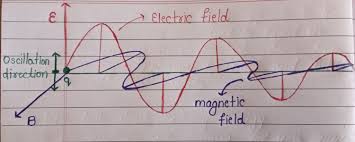 ε
Electric field
Oscillation
direction
q
B
magnetic
field